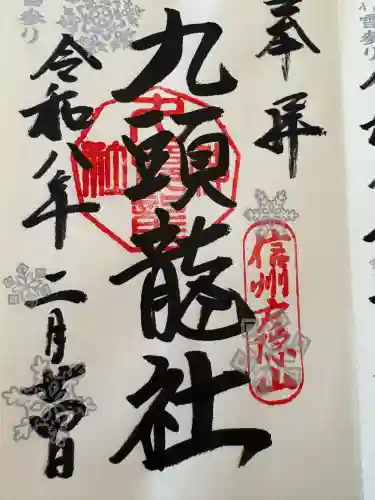 奉拝
九頭龍社
令和八年二月廿四日
信州戸隠山
雪参り